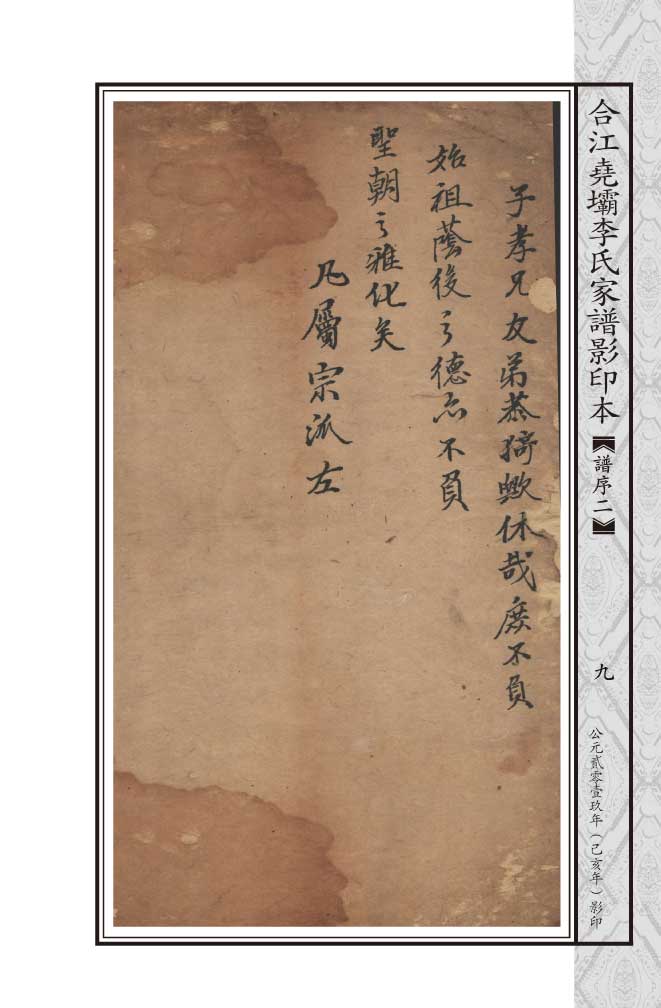 合江堯壩李氏家譜影印本【譜序二】
九
公元貳零壹玖年（己亥年）影印
子孝兄友弟恭猗歟休哉庶不負
始祖蔭後之德亦不負
聖朝之雅化矣
凡屬宗派左